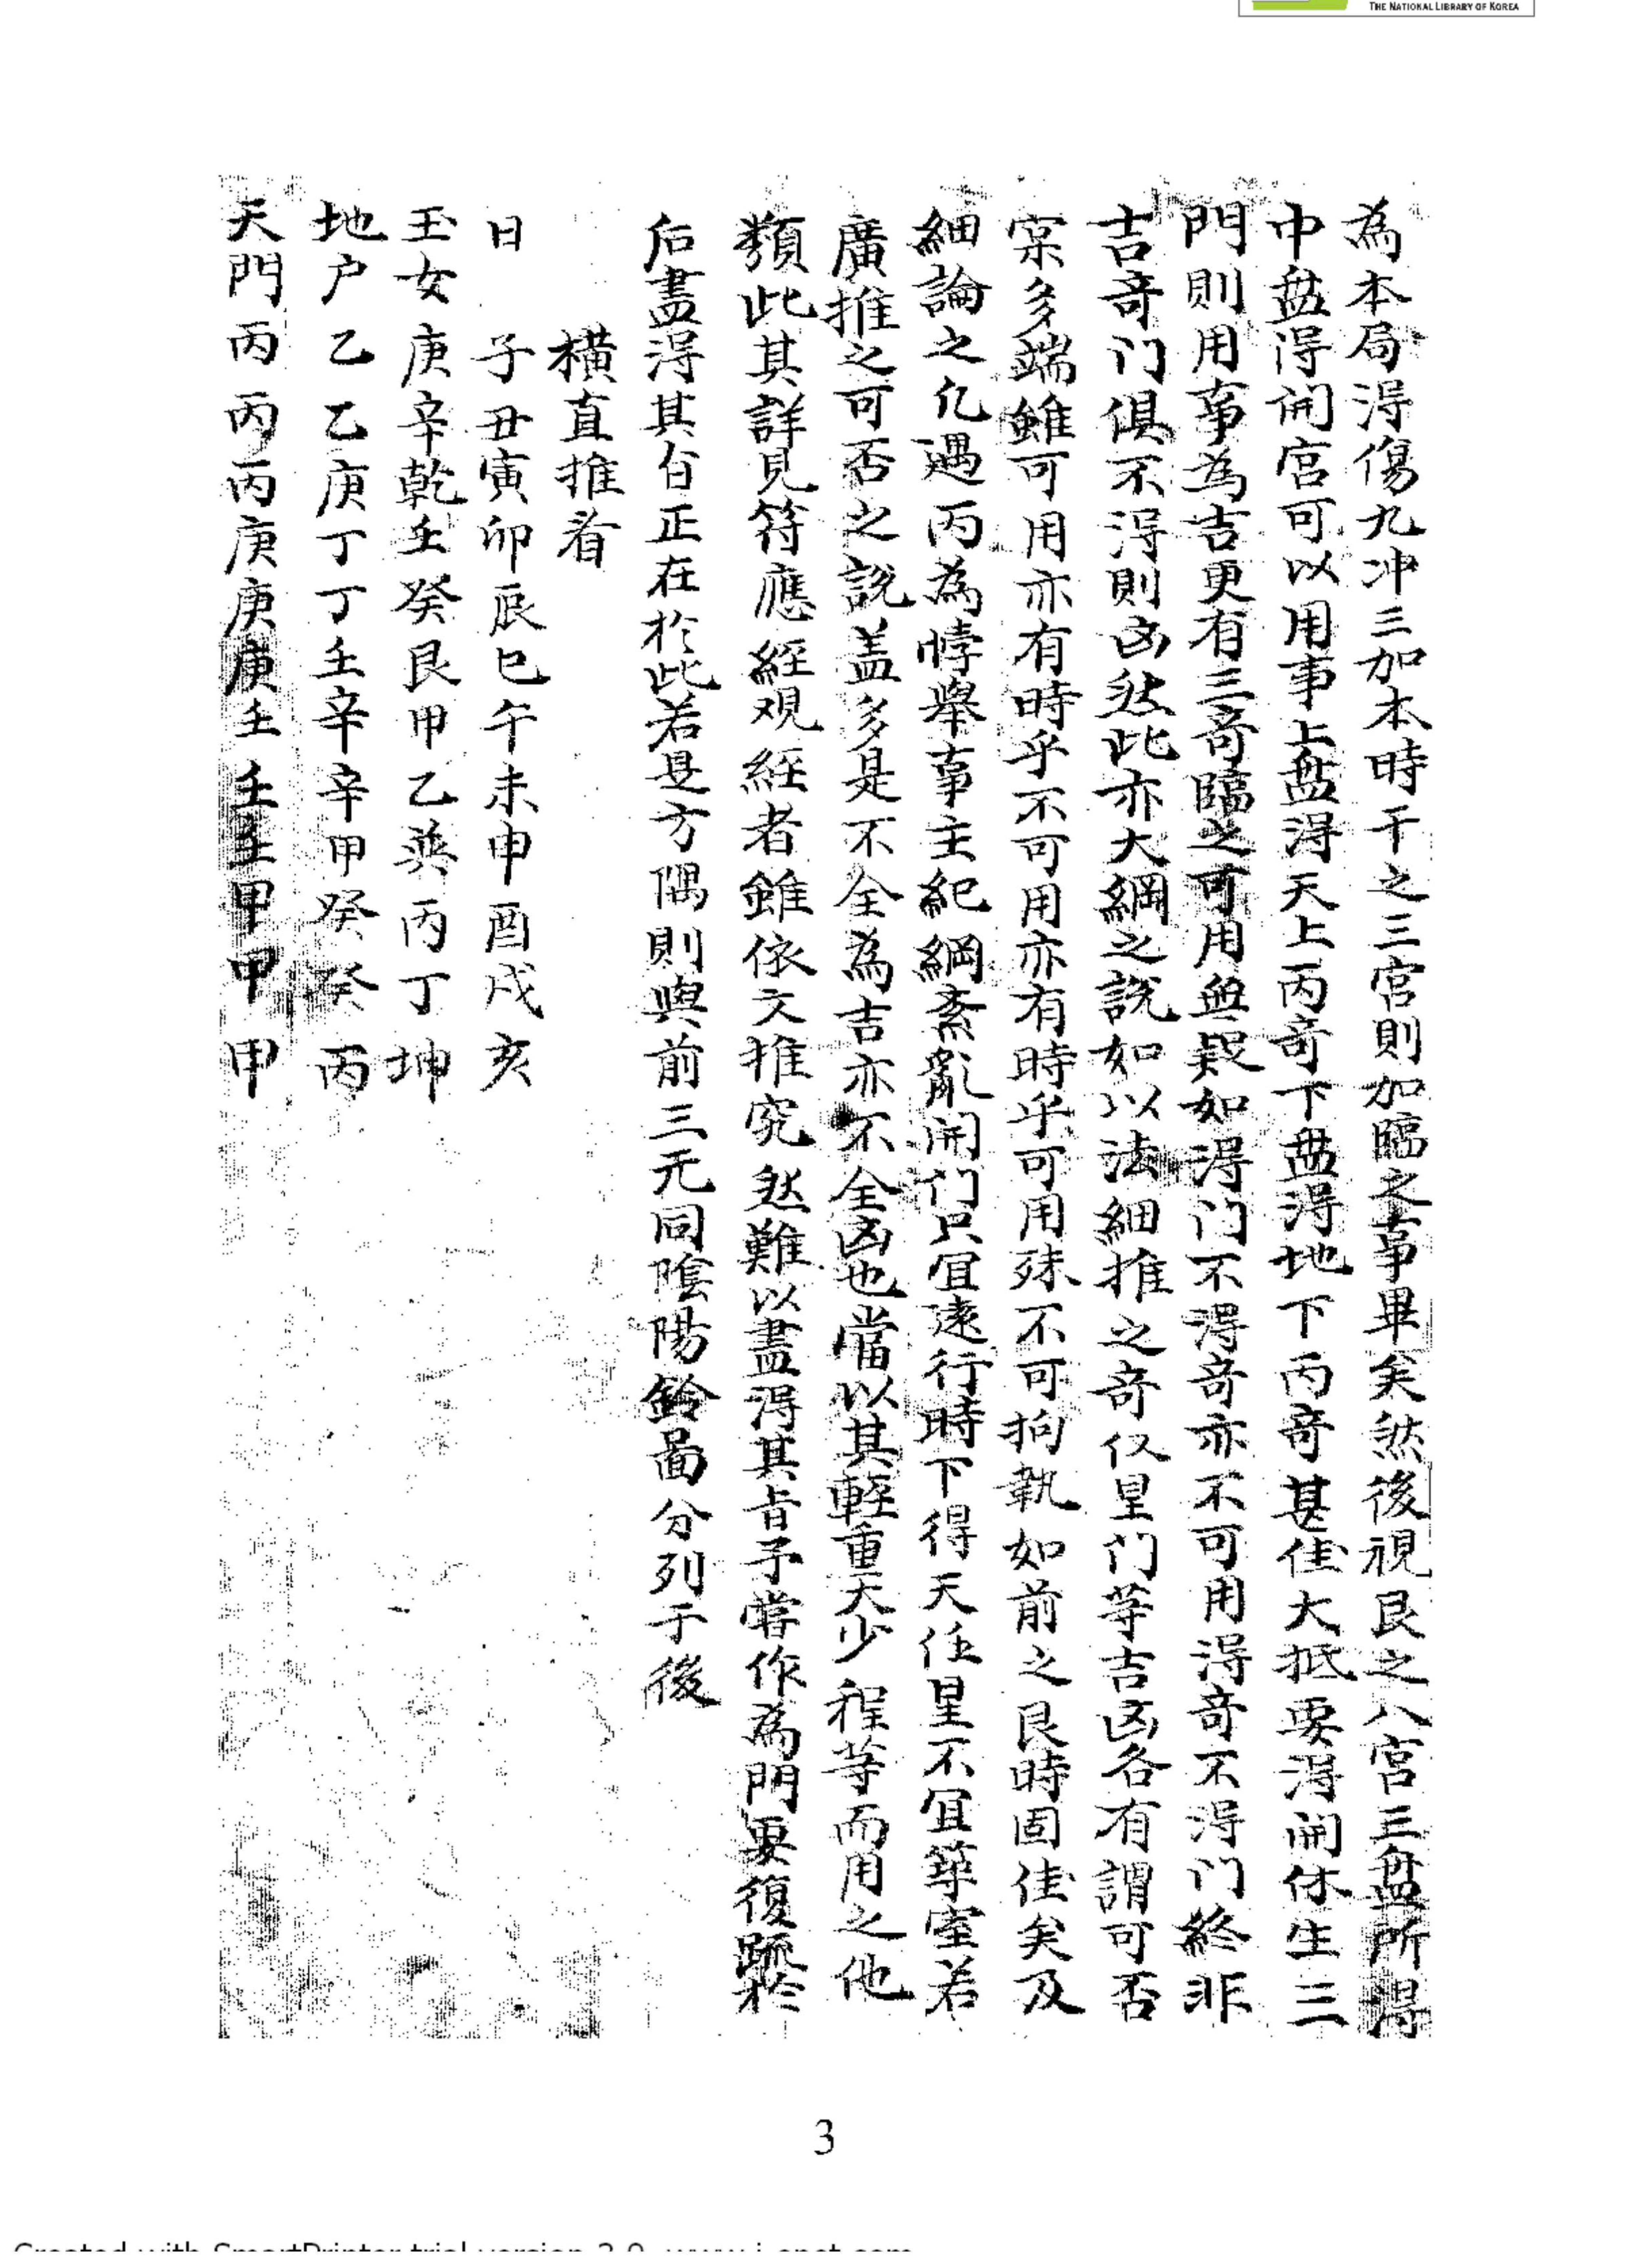 THE NATIONAL LIBRARY OF KOREA
為本局得傷九冲三加本時干之三宮則加臨之事畢矣然後視艮之八宮三盘所得
中盘得開宮可以用事上盘得天上丙奇下盘得地下丙奇甚佳大抵要得開休生三
門則用事為吉更有三奇臨之可用無疑如得门不得奇亦不可用得奇不得门終非
吉奇门俱不得則凶然此亦大綱之説如以法細推之奇仅星门等吉凶各有謂可否
寀多端雖可用亦有時乎不可用亦有時乎可用殊不可拘執如前之艮時固佳矣及
細論之凢遇丙為悖舉事主紀綱紊亂開门只宜遠行時下得天任星不宜華室若
廣推之可否之説盖多是不全為吉亦不全凶也當以其輕重大少程等而用之他
類此其詳見符應經观経者雖依文推究然難以盡得其旨予嘗作為門要復躔於
后盡得其旨正在於此若是方隅則與前三元同陰陽鈴圖分列于後
橫直推看
日 子丑寅卯辰巳午未申酉戌亥
玉女 庚辛乾壬癸艮甲乙巽丙丁坤
地户 乙乙庚丁丁壬辛辛甲癸癸丙
天門 丙丙丙庚庚庚壬壬壬甲甲甲
3
Created with SmartPrinter trial version 3.0 www.i-enet.com